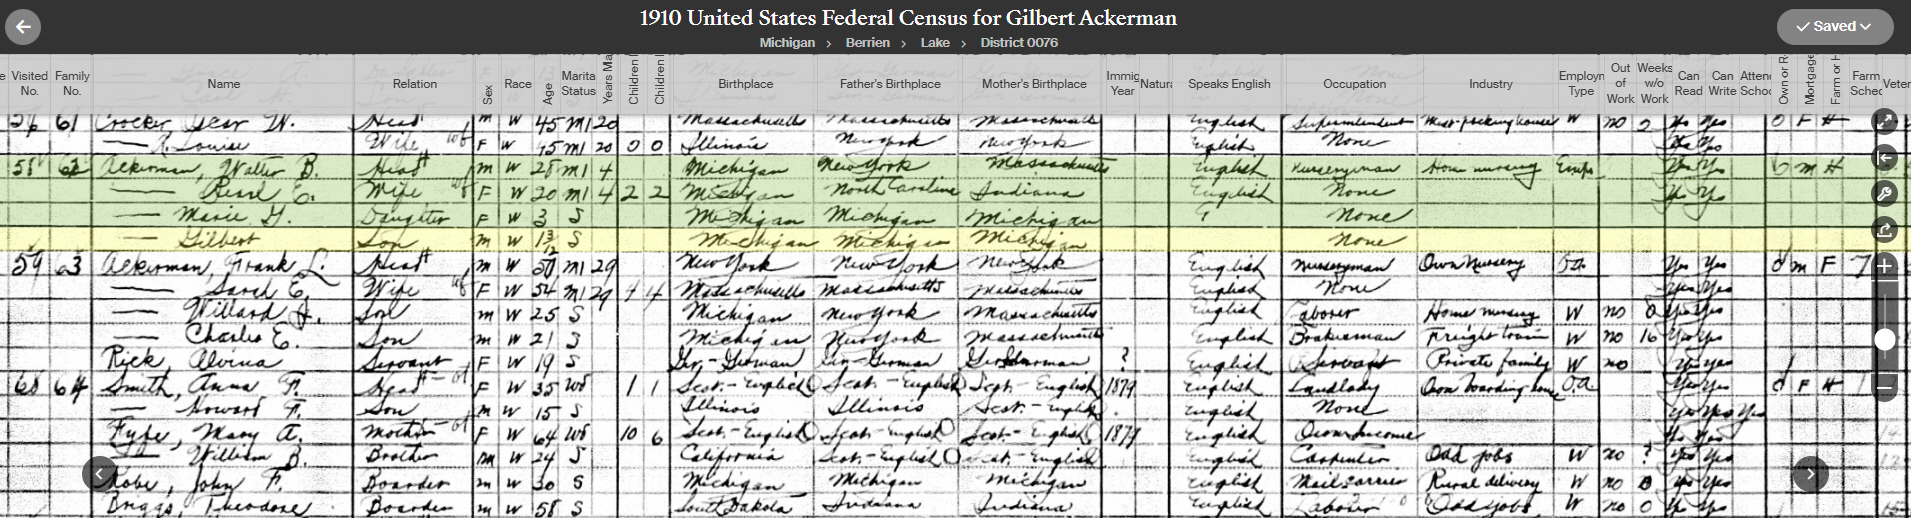 1910 United States Federal Census for Gilbert Ackerman
Michigan > Berrien > Lake > District 0076
Saved
Visited No. Family No. Name Relation Sex Race Age Marita Status Years Ma Children Children Birthplace Father's Birthplace Mother's Birthplace Immig Year Natura Speaks English Occupation Industry Employn Type Out of Work Weeks w/o Work Can Read Can Write Attend Schoo Own or R Mortgage Farm or H Farm Sched Veter
61 Crocker W. Head m W 45 m1 20 Massachusetts Massachusetts Massachusetts English Superintendent W no 2 Yes Yes O F H
— Louise Wife F W 45 m1 20 0 0 Illinois New York New York English None Yes Yes
58 62 Ackerman, Walter B. Head m W 28 m1 4 Michigan New York Massachusetts English Nurseryman Home nursery Emp Yes Yes m H
— Pearl E. Wife F W 20 m1 4 2 2 Michigan North Caroline Indiana English None Yes Yes
— Marie G. Daughter F W 3 S Michigan Michigan Michigan None
— Gilbert Son m W 13/12 S Michigan Michigan Michigan None
59 63 Ackerman, Frank L. Head m W 57 m1 29 New York New York New York English Nurseryman Own Nursery Yes Yes O m F 7
— Sarah E. Wife F W 54 m1 29 4 4 Massachusetts Massachusetts Massachusetts English None Yes Yes
— Willard H. Son m W 25 S Michigan New York Massachusetts English Laborer Home nursery W no 0 Yes Yes
— Charles E. Son m W 21 S Michigan New York Massachusetts English Brakesman Freight train W no 16 Yes Yes
Rick, Alvina Servant F W 19 S Ger-German Ger-German Ger-German ? English Servant Private family W no Yes Yes
60 64 Smith, Anna F. Head F W 35 Wd 1 1 Scot.-English Scot.-English Scot.-English 1879 English Landlady Own boarding house O.a. Yes Yes O F H
— Howard F. Son m W 15 S Illinois Illinois Scot.-English English None Yes Yes Yes
Fyfe, Mary A. Mother F W 64 Wd 10 6 Scot.-English Scot.-English Scot.-English 1879 English Own Income Yes Yes
— William B. Brother m W 24 S California Scot.-English Scot.-English English Carpenter Odd jobs W no ? Yes Yes
Kobe, John F. Boarder m W 30 S Michigan Michigan Michigan English Mail carrier Rural delivery W no 0 Yes Yes
Briggs, Theodore Boarder m W 58 S South Dakota Indiana Indiana English Laborer Odd jobs W no 0 Yes Yes